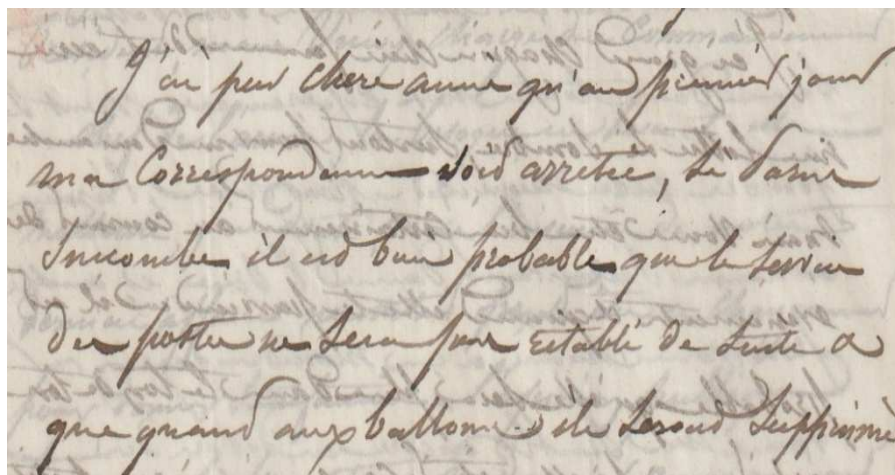 J'ai peur chere amie qu'au premier jour
ma Correspondance soid arretée, si Paris
Succombe il est bien probable que le Service
des postes ne sera pas retabli de suite a
que quand aux ballons ils seroud supprimé